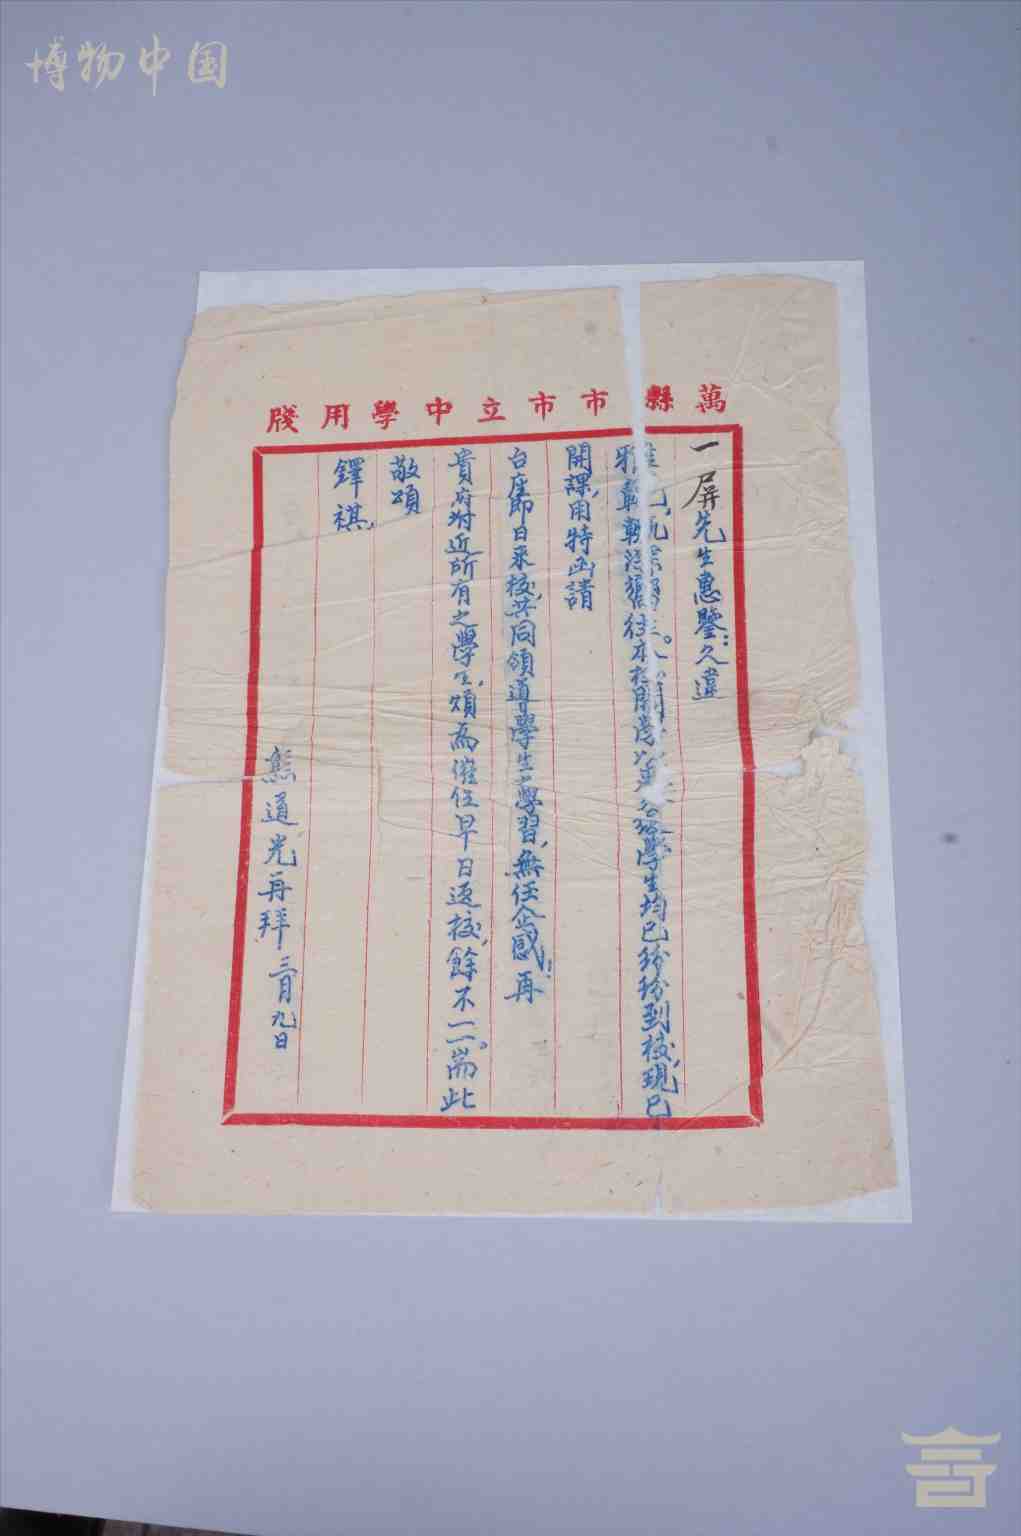 博物中国
萬縣市市立中學用牋
一屏先生惠鑒:久違
雅 往本校開學 學生均已紛紛到校,現已
開課,用特函請
台座即日來校,共同領導學生之學習,無任企感!再
貴府附近所有之學生,煩為催促早日返校,餘不一一。耑此
敬頌
鐸祺,
熊道光再拜 三月九日